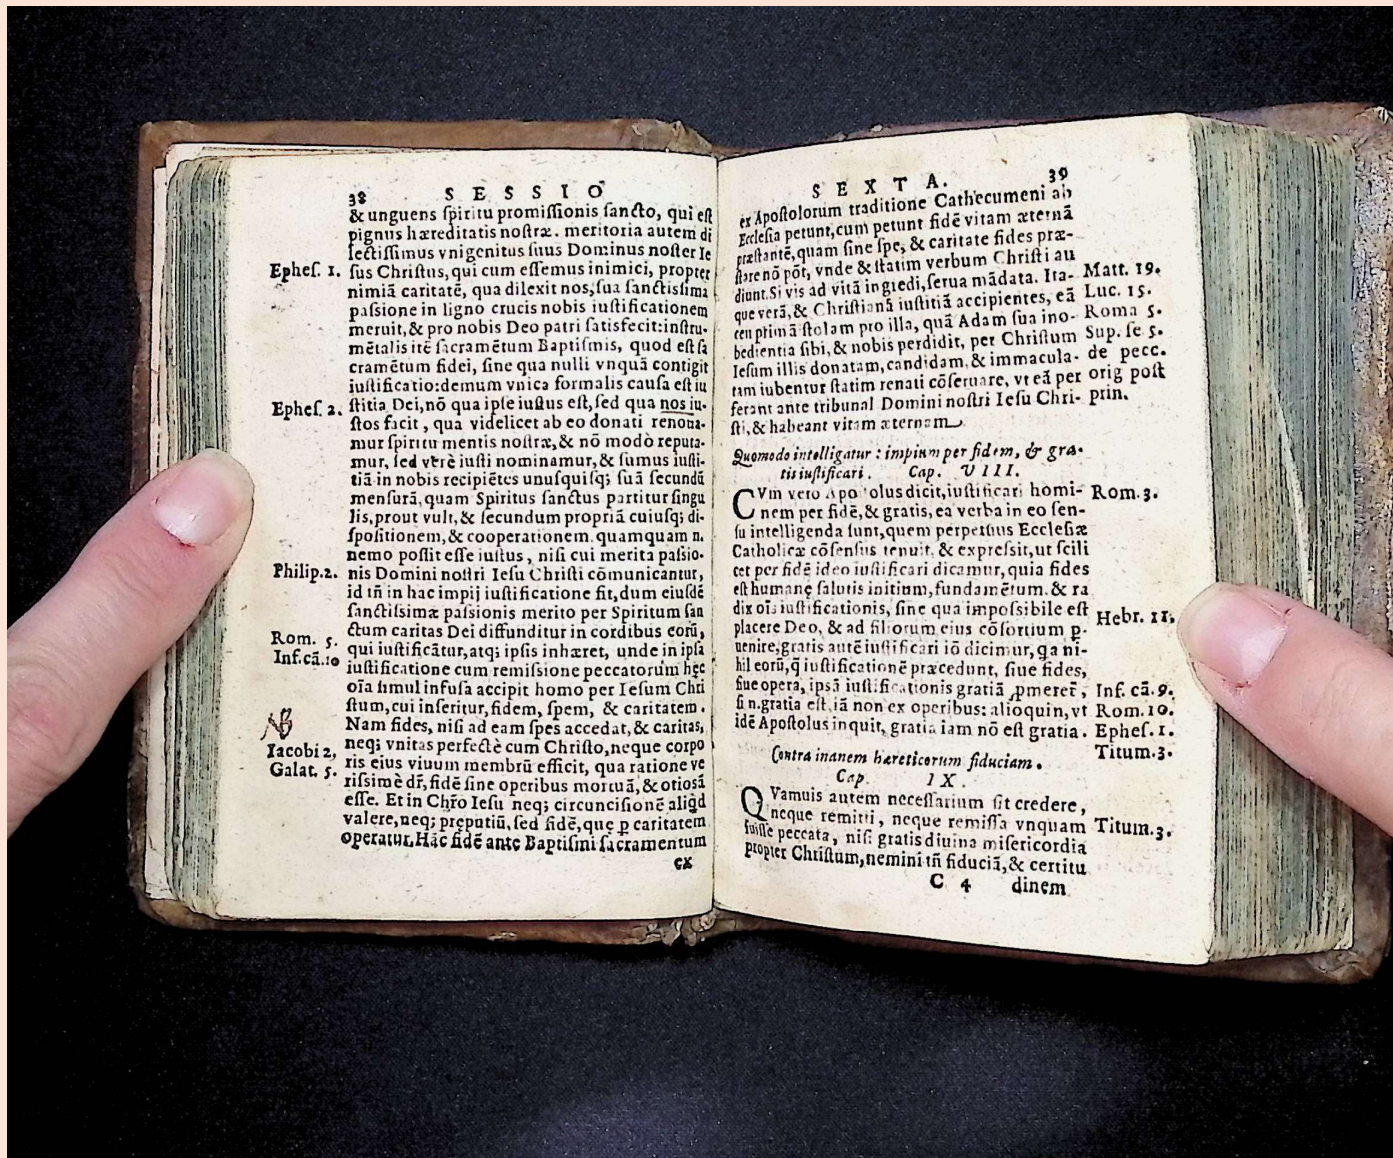 38 SESSIO
& unguens ſpiritu promiſſionis ſancto, qui eſt
pignus hæreditatis noſtræ. meritoria autem di
lectiſſimus vnigenitus ſuus Dominus noſter Ie
Epheſ. 1. ſus Chriſtus, qui cum eſſemus inimici, propter
nimiā caritatē, qua dilexit nos, ſua ſanctiſsima
paſsione in ligno crucis nobis iuſtificationem
meruit, & pro nobis Deo patri ſatisfecit: inſtru-
mētalis itē ſacramētum Baptiſmis, quod eſt ſa
cramētum fidei, ſine qua nulli vnquā contigit
iuſtificatio: demum vnica formalis cauſa eſt iu
Epheſ. 2. ſtitia Dei, nō qua ipſe iuſtus eſt, ſed qua nos iu-
ſtos facit, qua videlicet ab eo donati renoua-
mur ſpiritu mentis noſtræ, & nō modò reputa-
mur, ſed verè iuſti nominamur, & ſumus iuſti-
tiā in nobis recipiētes unuſquiſq; ſuā ſecundū
menſurā, quam Spiritus ſanctus partitur ſingu
lis, prout vult, & ſecundum propriā cuiuſq; di-
ſpoſitionem, & cooperationem. quamquam n.
nemo poſſit eſſe iuſtus, niſi cui merita paſsio-
Philip. 2. nis Domini noſtri Ieſu Chriſti cōmunicantur,
id tñ in hac impij iuſtificatione fit, dum eiuſdē
ſanctiſsimæ paſsionis merito per Spiritum ſan
ctum caritas Dei diffunditur in cordibus eorū,
Rom. 5. qui iuſtificātur, atq; ipſis inhæret, unde in ipſa
Inf. cā. 10 iuſtificatione cum remiſsione peccatorum hęc
oīa ſimul infuſa accipit homo per Ieſum Chri
ſtum, cui inſeritur, fidem, ſpem, & caritatem.
NB Nam fides, niſi ad eam ſpes accedat, & caritas,
Iacobi 2, neq; vnitas perfectè cum Chriſto, neque corpo
Galat. 5. ris eius viuum membrū efficit, qua ratione ve
riſſimè dr̄, fidē ſine operibus mortuā, & otioſā
eſſe. Et in Chr̄o Ieſu neq; circunciſionē aliqd
valere, neq; pręputiū, ſed fidē, quę ꝑ caritatem
operatur. Hāc fidē ante Baptiſmi ſacramentum
ex
SEXTA. 39
ex Apoſtolorum traditione Cathecumeni ab
Eccleſia petunt, cum petunt fidē vitam æternā
præſtantē, quam ſine ſpe, & caritate fides præ-
ſtare nō pōt, vnde & ſtatim verbum Chriſti au
diunt. Si vis ad vitā ingredi, ſerua mādata. Ita- Matt. 19.
que verā, & Chriſtianā iuſtitiā accipientes, eā Luc. 15.
ceu primā ſtolam pro illa, quā Adam ſua ino- Roma 5.
bedientia ſibi, & nobis perdidit, per Chriſtum Sup. ſe 5.
Ieſum illis donatam, candidam, & immacula- de pecc.
tam iubentur ſtatim renati cōſeruare, vt eā per orig poſt
ferant ante tribunal Domini noſtri Ieſu Chri- prin.
ſti, & habeant vitam æternam
Quomodo intelligatur: impium per fidem, & gra-
tis iuſtificari. Cap. VIII.
CVm vero Apo olus dicit, iuſtificari homi- Rom. 3.
nem per fidē, & gratis, ea verba in eo ſen-
ſu intelligenda ſunt, quem perpetuus Eccleſiæ
Catholicæ cōſenſus tenuit, & expreſsit, ut ſcili
cet per fidē ideo iuſtificari dicamur, quia fides
eſt humanę ſalutis initium, fundamētum, & ra
dix oīs iuſtificationis, ſine qua impoſsibile eſt Hebr. 11.
placere Deo, & ad filiorum eius cōſortium p-
uenire, gratis autē iuſtificari iō dicimur, qa ni-
hil eorū, q̄ iuſtificationē præcedunt, ſiue fides,
ſiue opera, ipſā iuſtificationis gratiā ꝓmeret̄, Inf. cā. 9.
ſi n. gratia eſt, iā non ex operibus: alioquin, vt Rom. 10.
idē Apoſtolus inquit, gratia iam nō eſt gratia. Epheſ. 1.
Contra inanem hæreticorum fiduciam. Titum. 3.
Cap. IX.
QVamuis autem neceſſarium ſit credere,
neque remitti, neque remiſſa vnquam Titum. 3.
fuiſſe peccata, niſi gratis diuina miſericordia
propter Chriſtum, nemini tñ fiduciā, & certitu
C 4 dinem